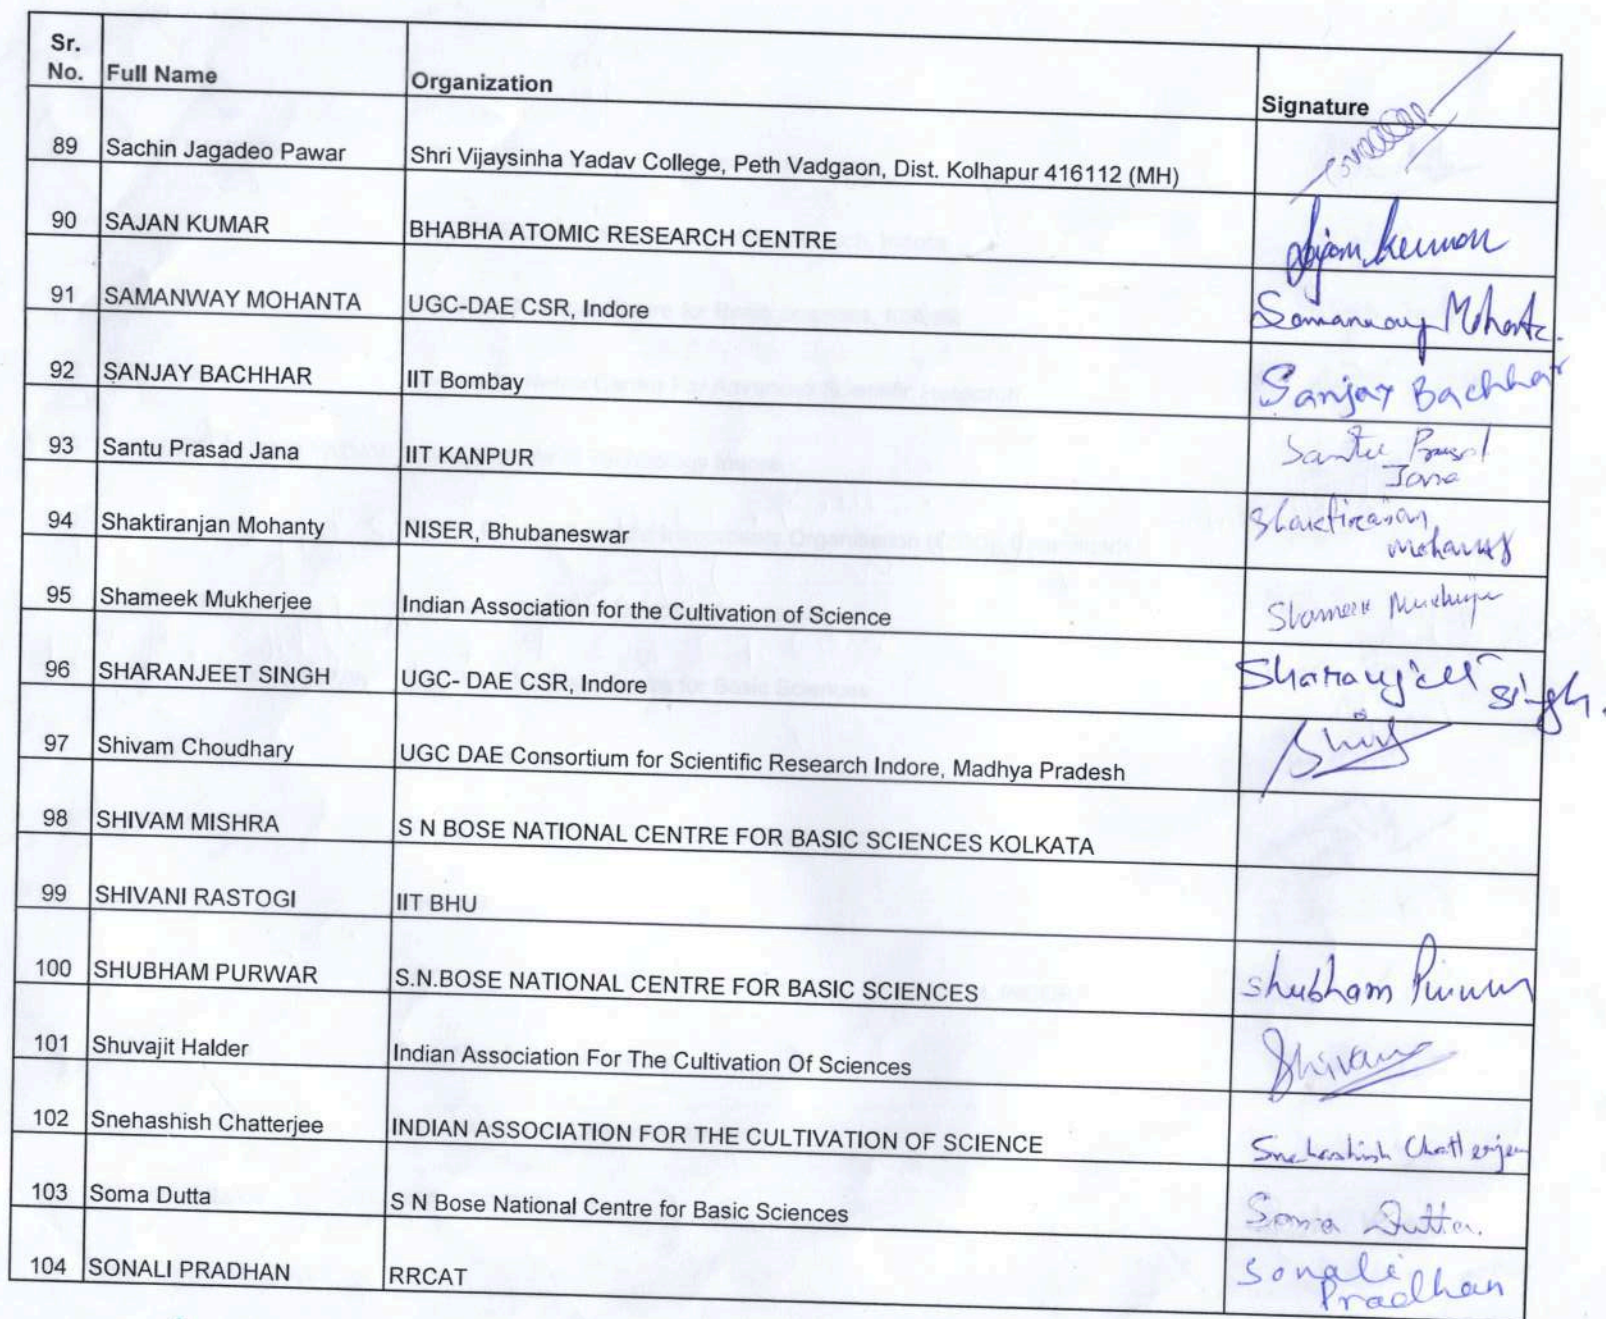 Sr. No. Full Name Organization Signature
89 Sachin Jagadeo Pawar Shri Vijaysinha Yadav College, Peth Vadgaon, Dist. Kolhapur 416112 (MH)
90 SAJAN KUMAR BHABHA ATOMIC RESEARCH CENTRE Sajan Kumar
91 SAMANWAY MOHANTA UGC-DAE CSR, Indore Samanway Mohanta.
92 SANJAY BACHHAR IIT Bombay Sanjay Bachhar
93 Santu Prasad Jana IIT KANPUR Santu Prasad Jana
94 Shaktiranjan Mohanty NISER, Bhubaneswar Shaktiranjan Mohanty
95 Shameek Mukherjee Indian Association for the Cultivation of Science Shameek Mukherjee
96 SHARANJEET SINGH UGC- DAE CSR, Indore Sharanjeet Singh.
97 Shivam Choudhary UGC DAE Consortium for Scientific Research Indore, Madhya Pradesh
98 SHIVAM MISHRA S N BOSE NATIONAL CENTRE FOR BASIC SCIENCES KOLKATA
99 SHIVANI RASTOGI IIT BHU
100 SHUBHAM PURWAR S.N.BOSE NATIONAL CENTRE FOR BASIC SCIENCES Shubham Purwar
101 Shuvajit Halder Indian Association For The Cultivation Of Sciences
102 Snehashish Chatterjee INDIAN ASSOCIATION FOR THE CULTIVATION OF SCIENCE Snehashish Chatterjee
103 Soma Dutta S N Bose National Centre for Basic Sciences Soma Dutta.
104 SONALI PRADHAN RRCAT Sonali Pradhan